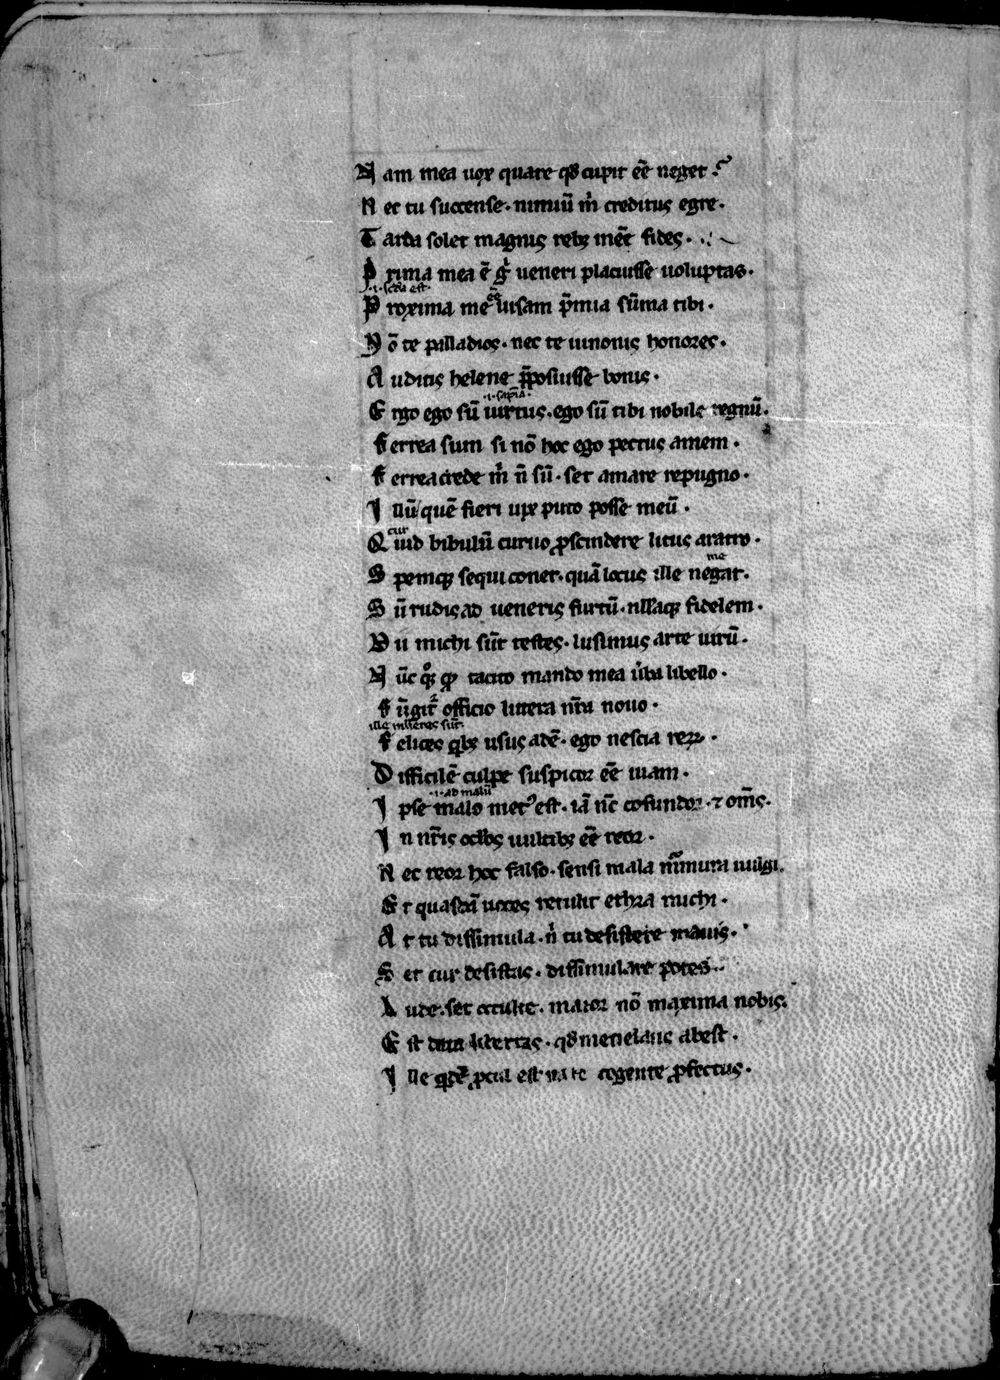 Nam mea uox quare qđ cupit eē neget.
Nec tu succense. nimiū m̉ creditus egre.
Tarda solet magnis rebꝫ inēe fides.
Prima mea ē g̉ ueneri placuisse uoluptas.
.i. scđa est. ēē
Proxima me uisam p̄mia sūma tibi.
Nō te palladios. nec te iunonis honores.
Auditis helene p̄posuisse bonis.
.i. sapīa.
Ergo ego sū uirtus. ego sū tibi nobile regnū.
Ferrea sum si nō hoc ego pectus amem.
Ferrea crede m̉ n̄ sū. set amare repugno.
Illū quē fieri uix puto posse meū.
cur
Quid bibulū curuo ꝓscindere litus aratro.
me
Spemqꝫ sequi coner. quā locus ille negat.
Sū rudis ad ueneris furtū. nllāqꝫ fidelem.
Dii michi sūt testes. lusimus arte uirū.
Nūc qꝫ qđ tacito mando mea ủba libello.
Fūgit̉ officio littera nr̄a nouo.
ille mulieres sūt.
Felices qͥbꝫ usus adē. ego nescia reꝝ.
Difficilē culpe suspicor eē uiam.
.i. ad malū
Ipse malo metꝰ est. iā nc̄ cōfundor. ⁊ om̄s.
In nr̄is oclis uultibꝫ eē reor.
Nec reor hoc falso. sensi mala m̄mura uulgi.
Et quasdā uoces retulit ethra michi.
At tu dissimula. n̉ tu desistere mauis.
Set cur desistas. dissimulare potes.
Lude. set occulte. maior nō maxima nobis.
Est data libertas. qđ menelaus abest.
Ille qͥdē ꝓcul est ita re cogente ꝓfectus.